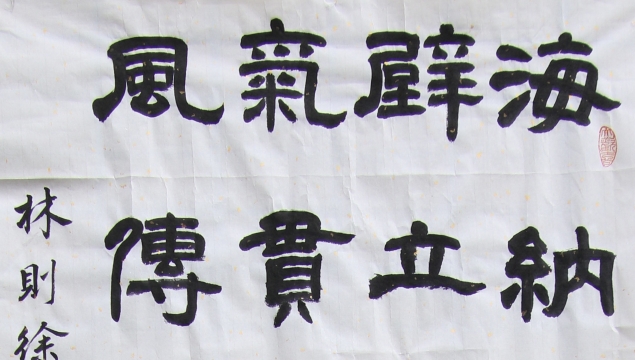 海納
辟立
氣貫
風傳
林則徐